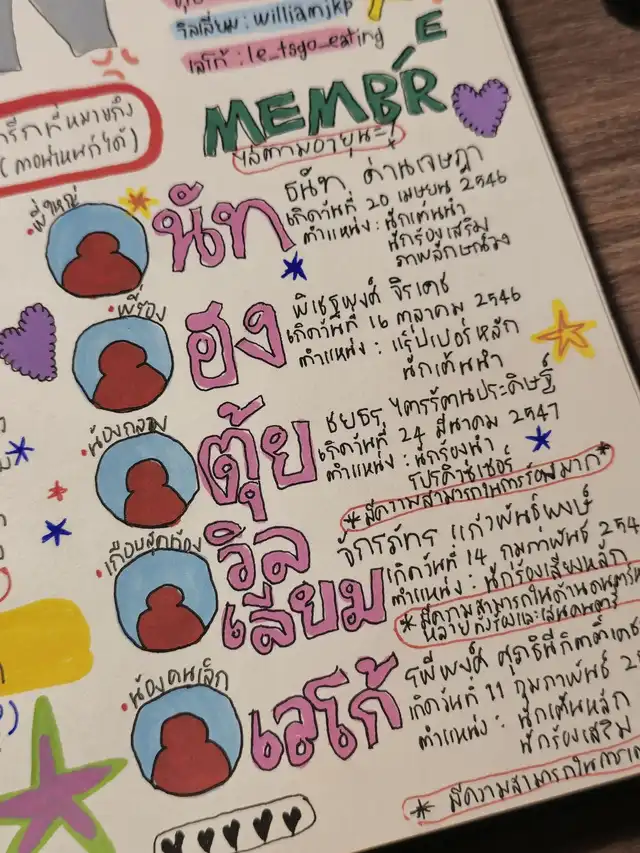 วิลเลียม : williamjkp
เลโก้ : le_tsgo_eating
MEMBRE
ไล่ตามอายุนะ!
(ตอนไหนก็ได้)
•พี่ใหญ่
นัท
ธนัท ด่านเจษฎา
เกิดวันที่ 20 เมษยน 2546
ตำแหน่ง : นักเต้นนำ
นักร้องเสริม
ภาพลักษณ์วง
•พี่รอง
ฮง
พิเชฐพงศ์ จิรเดช
เกิดวันที่ 16 ตุลาคม 2546
ตำแหน่ง : แร็ปเปอร์หลัก
นักเต้นนำ
•น้องกลาง
ตุ้ย
ชยธร ไตรรัตนประดิษฐ์
เกิดวันที่ 24 มีนาคม 2547
ตำแหน่ง : นักร้องนำ
โปรดิวเซอร์
*มีความสามารถในการร้องมาก*
•เกือบสุดท้อง
วิล
เลียม
จักรภัทร แก้วพันธุ์พงษ์
เกิดวันที่ 14 กุมภาพันธ์ 254
ตำแหน่ง : นักร้องเสียงหลัก
*มีความสามารถในด้านดนตรี
หลาย ทั้งร้องและเล่นดนตรี
•น้องคนเล็ก
เลโก้
รพีพงศ์ ศุภธินีกิตติ์เดช
เกิดวันที่ 11 กุมภาพันธ์ 2
ตำแหน่ง : นักเต้นหลัก
นักร้องเสริม
* มีความสามารถในการเต